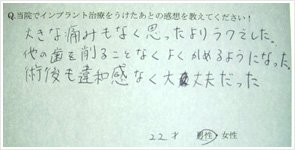 Q.当院でインプラント治療をうけたあとの感想を教えてください!
大きな痛みもなく思ったよりラクでした。
他の歯を削ることなくよくかめるようになった。
術後も違和感なく大丈夫だった
22才 男性・女性